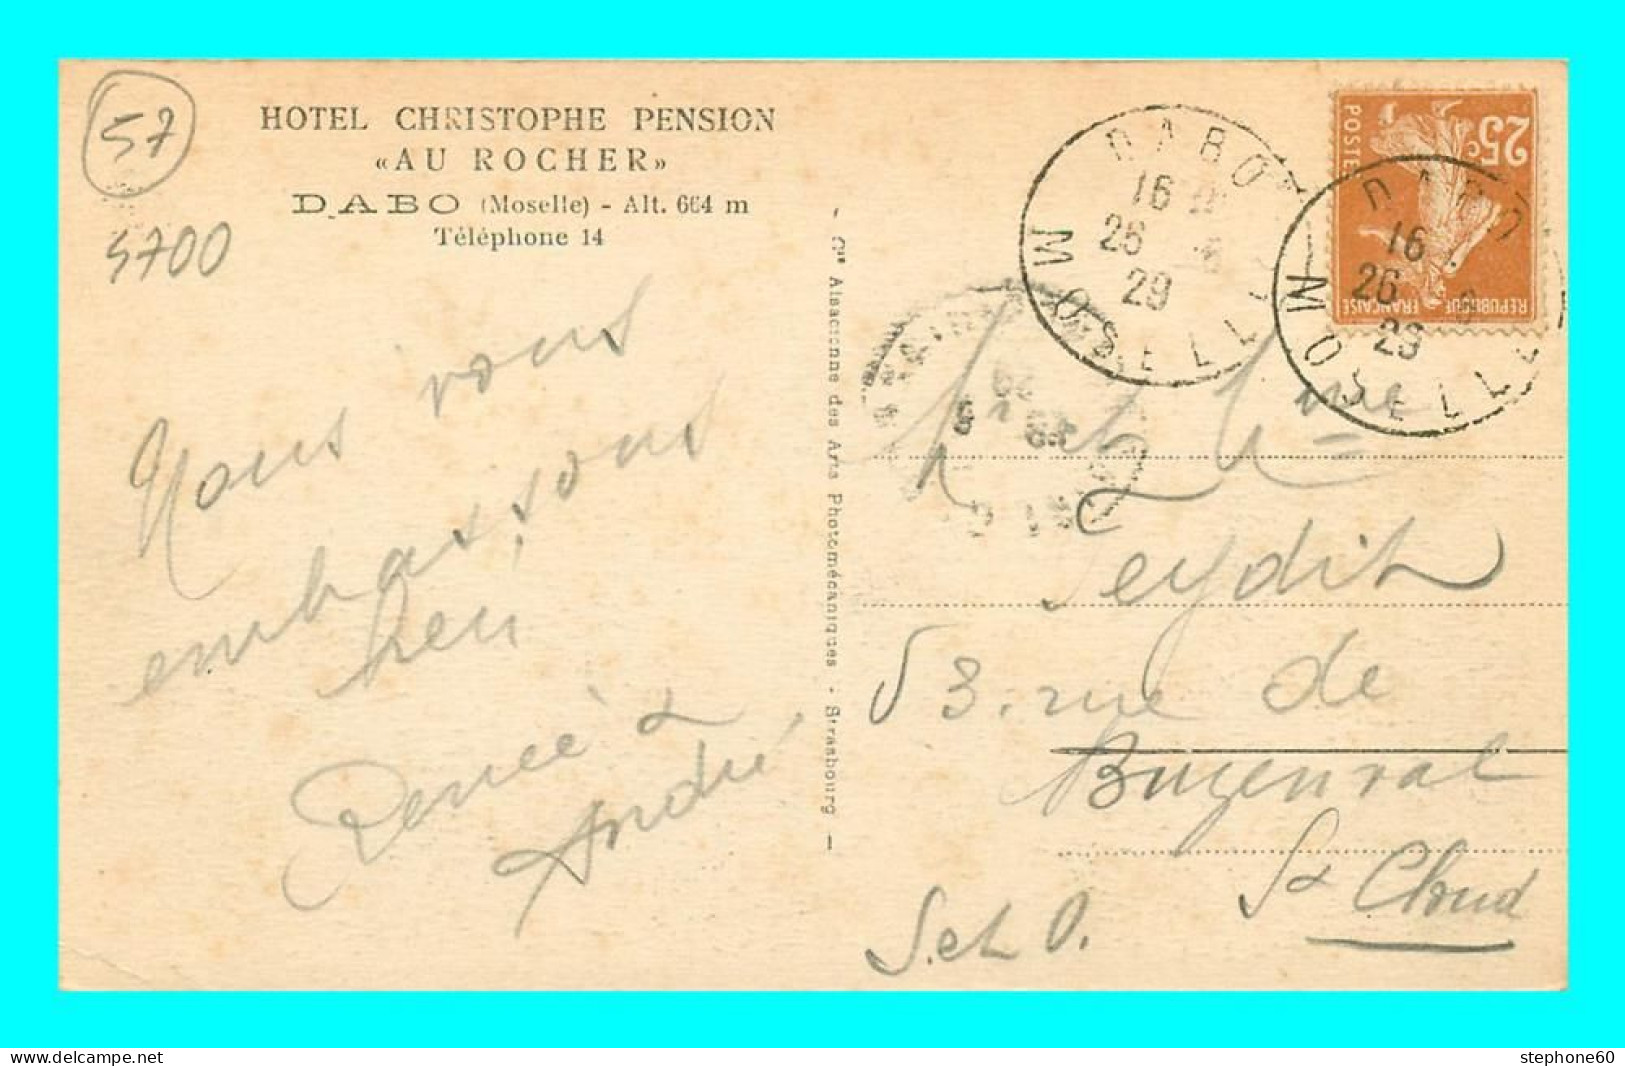 57
5700
HOTEL CHRISTOPHE PENSION
«AU ROCHER»
DABO (Moselle) - Alt. 664 m
Téléphone 14
Nous vous
embrassons
bien
Renée &
André
Cie Alsacienne des Arts Photomécaniques - Strasbourg
DABO
16
26
29
MOSELLE
DABO
16
26
29
MOSELLE
25c
POSTES
REPUBLIQUE FRANÇAISE
Mme
Teydit
53. rue de
Buzenval
St Cloud
S. et O.
stephone60